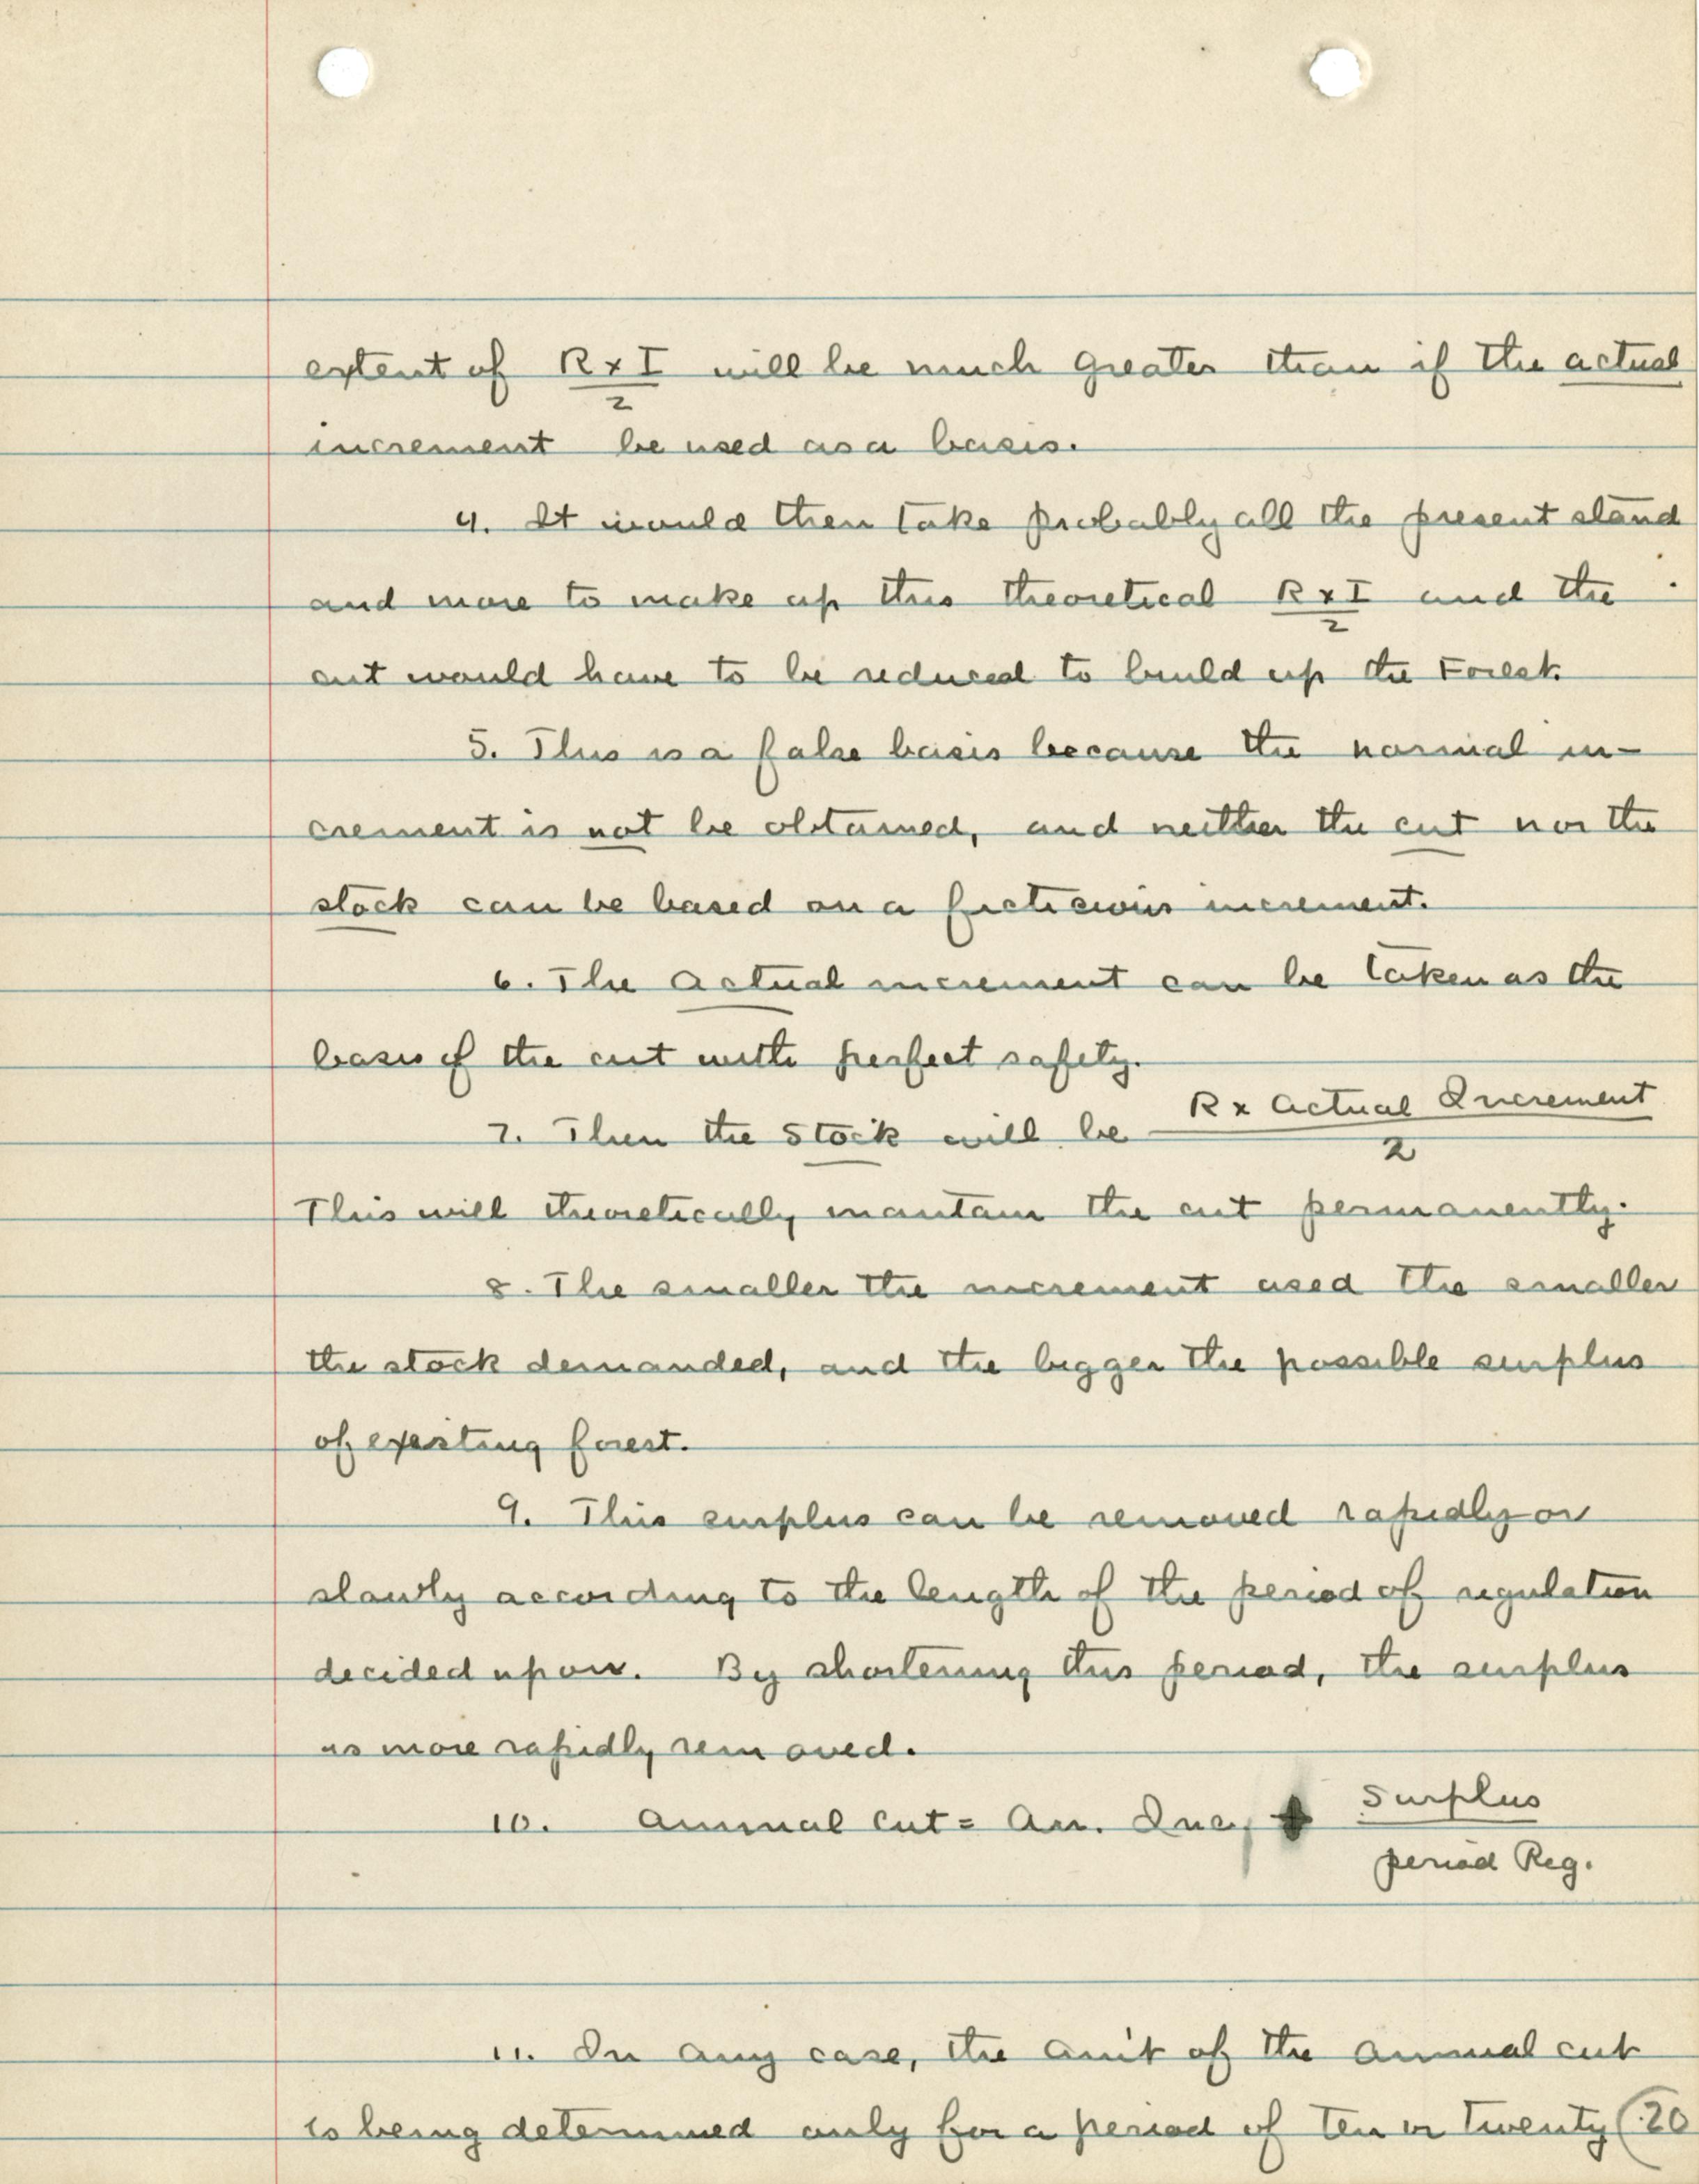 extent of R x I will be much greater than if the actual
2
increment be used as a basis.
4. It would then take probably all the present stand
and more to make up this theoretical R x I and the
2
cut would have to be reduced to build up the Forest.
5. This is a false basis because the normal in-
crement is not be obtained, and neither the cut nor the
stock can be based on a ficticious increment.
6. The actual increment can be taken as the
basis of the cut with perfect safety.
R x Actual Increment
7. Then the stock will be
2
This will theoretically mantain the cut permanently.
8. The smaller the increment used the smaller
the stock demanded, and the bigger the possible surplus
of existing forest.
9. This surplus can be removed rapidly or
slowly according to the length of the period of regulation
decided upon. By shortening this period, the surplus
is more rapidly removed.
Surplus
10. Annual Cut = An. Inc. +
period Reg.
11. In any case, the amt of the annual cut
is being determined only for a period of ten or twenty (20